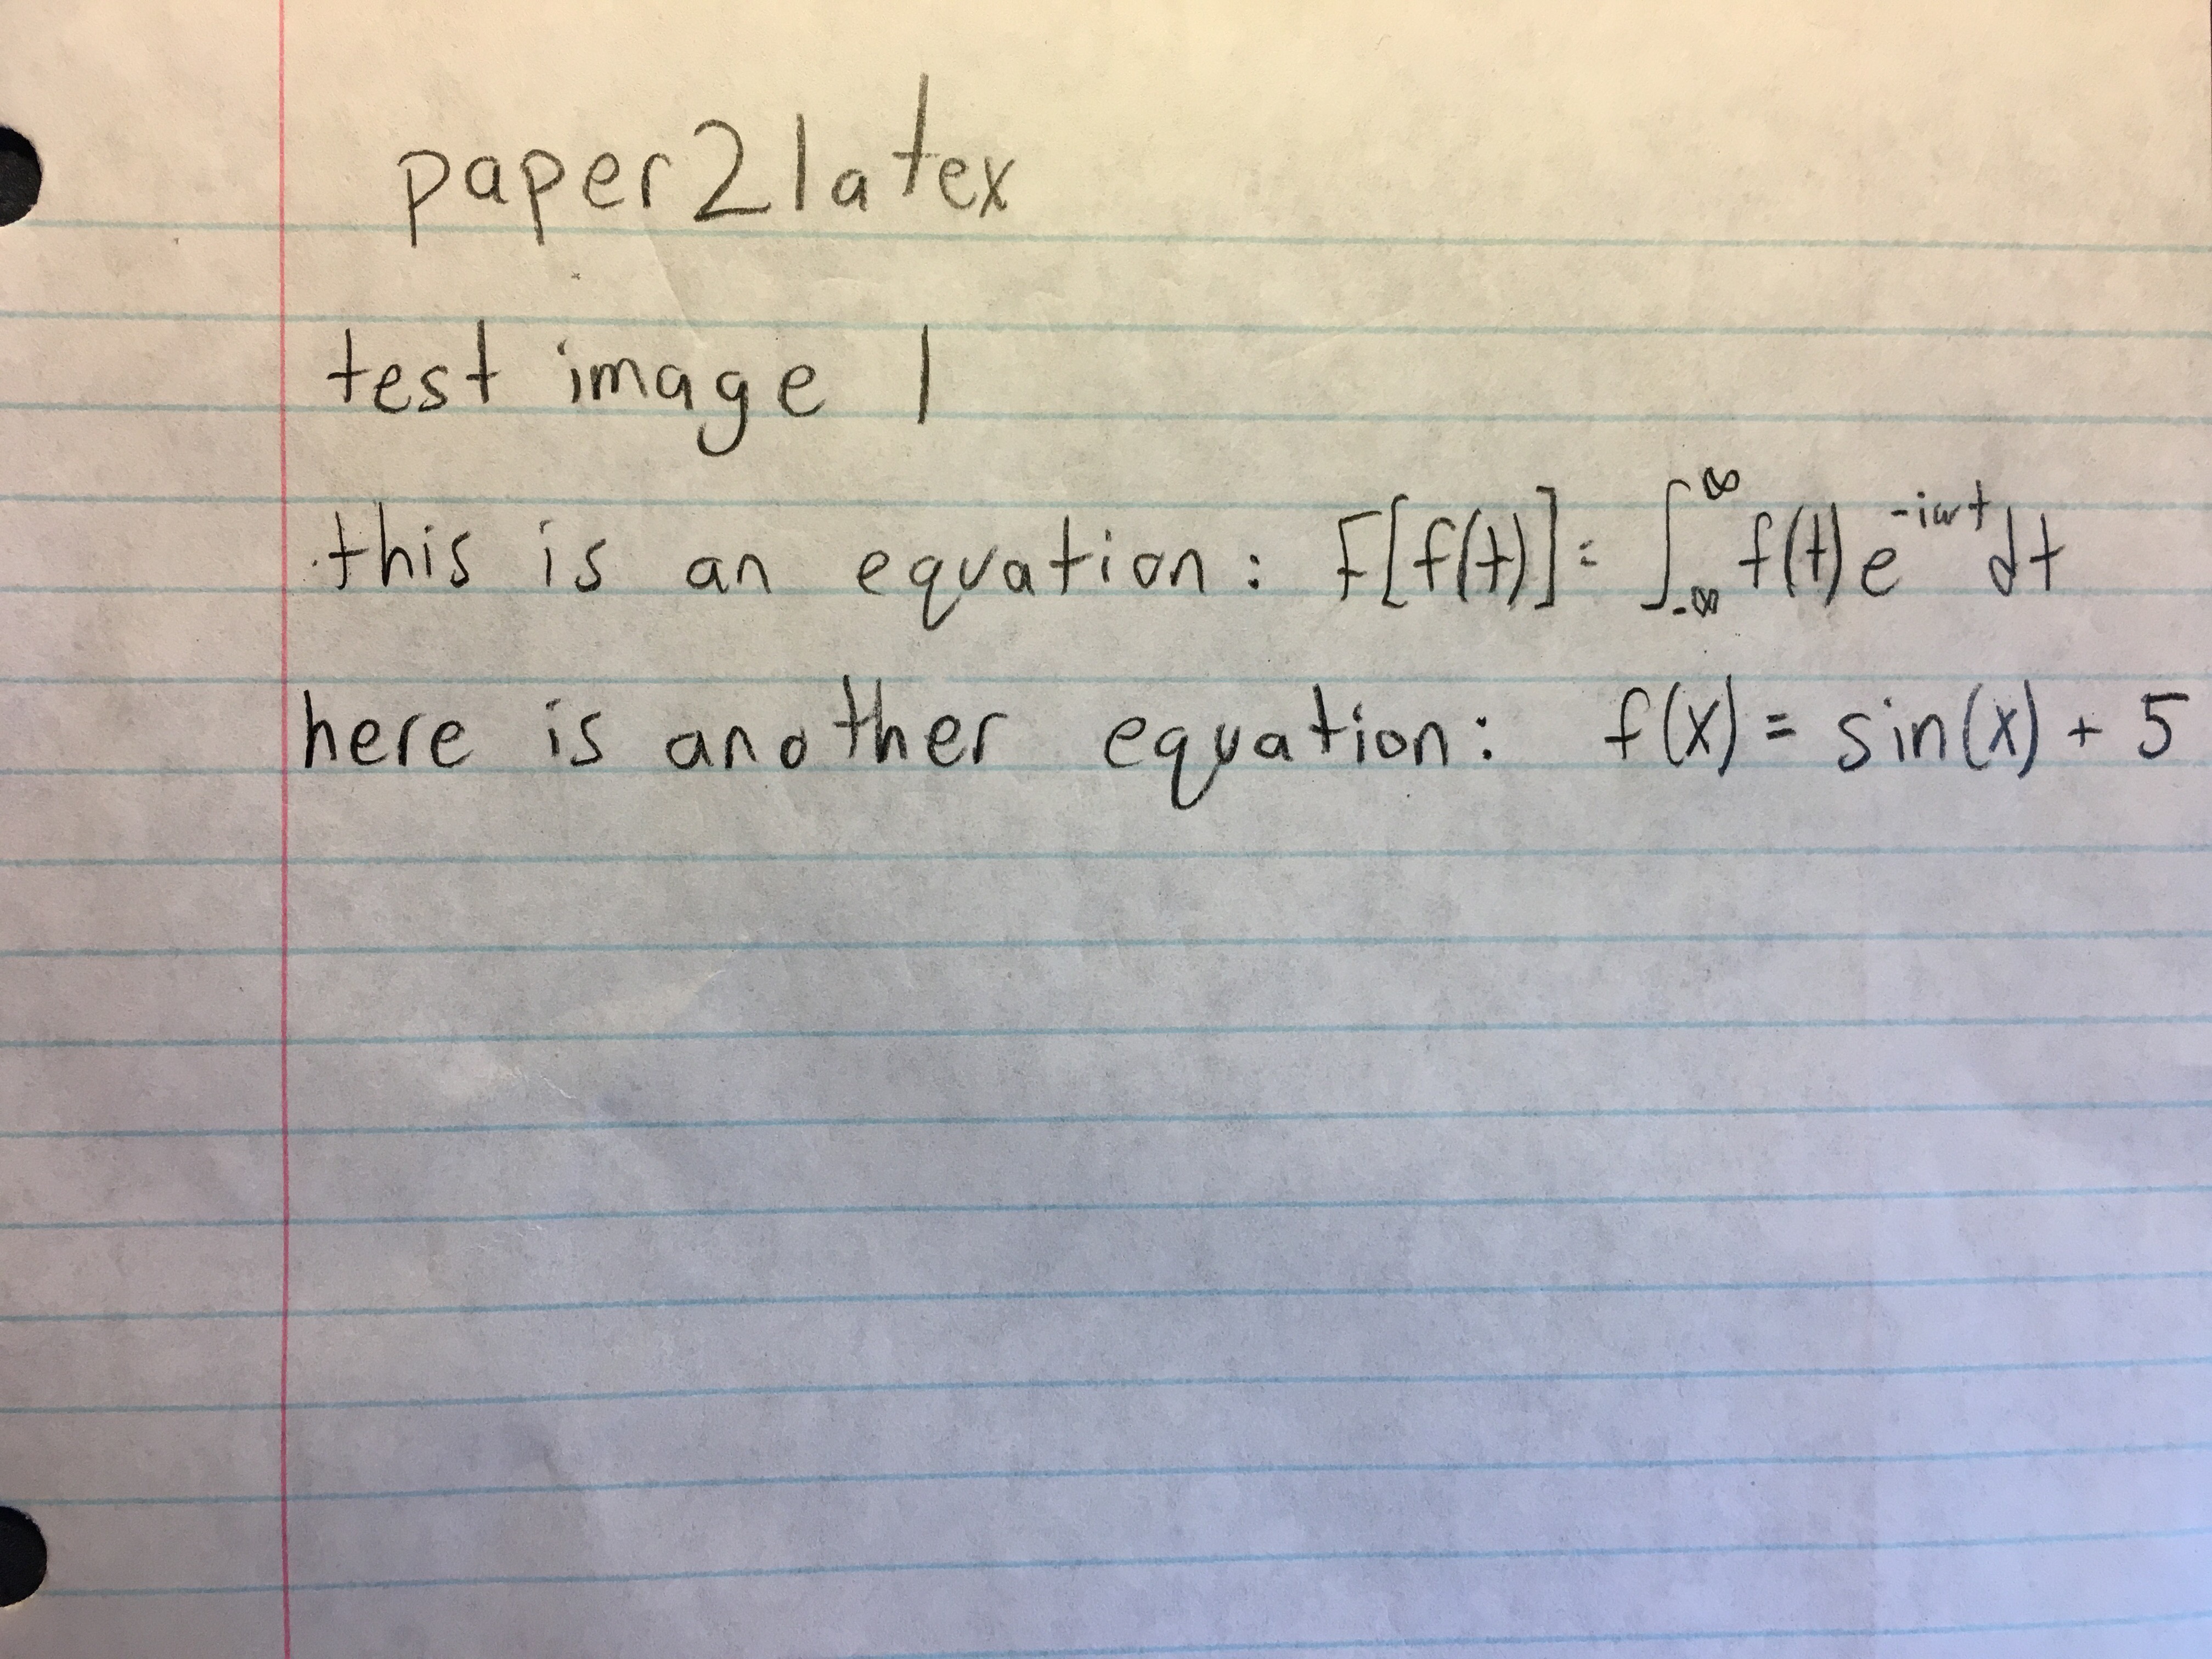 paper2latex
test image 1
this is an equation: F[f(t)] = ∫_{-∞}^{∞} f(t)e^{-iωt} dt
here is another equation: f(x) = sin(x) + 5